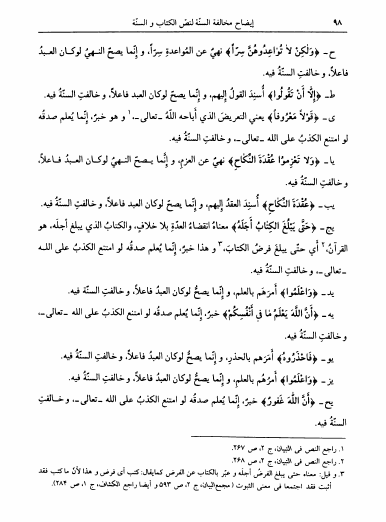 ٩٨ إيضاح مخالفة السنّة لنصّ الكتاب و السنّة
ح - ﴿وَلٰكِنْ لاٰ تُوٰاعِدُوهُنَّ سِرّاً﴾ نهيٌ عن المُواعدةِ سِرّاً، و إنّما يصحّ النهيُ لوكان العبدُ
فاعلاً، و خالفتِ السنّةُ فيه.
ط - ﴿إِلاّٰ أَنْ تَقُولُوا﴾ أُسنِدَ القولُ إليهم، و إنّما يصحّ لوكان العبد فاعلاً، و خالفتِ السنّةُ فيه.
ى - ﴿قَوْلاً مَعْرُوفاً﴾ يعني التعريضَ الذي أباحه اللهُ -تعالى-،١ و هو خبرٌ، إنّما يُعلم صدقُه
لو امتنع الكذبُ على الله -تعالى-، و خالفتِ السنّةُ فيه.
يا - ﴿وَلاٰ تَعْزِمُوا عُقْدَةَ النِّكٰاحِ﴾ نهيٌ عن العزمِ، و إنّما يصحّ النهيُ لوكان العبدُ فاعلاً،
و خالفتِ السنّةُ فيه.
يب - ﴿عُقْدَةَ النِّكٰاحِ﴾ أُسنِدَ العقدُ إليهم، و إنّما يصحّ لوكان العبدُ فاعلاً، و خالفتِ السنّةُ فيه.
يج - ﴿حَتّٰى يَبْلُغَ الْكِتٰابُ أَجَلَهُ﴾ معناهُ انقضاءُ العدّةِ بلا خلافٍ، والكتابُ الذي يبلغ أجلَه، هو
القرآنُ،٢ أي حتّى يبلغَ فرضُ الكتابِ،٣ و هذا خبرٌ، إنّما يُعلم صدقُه لو امتنع الكذبُ على الله
-تعالى-، و خالفتِ السنّةُ فيه.
يد - ﴿وَاعْلَمُوا﴾ أمرَهم بالعلمِ، و إنّما يصحّ لوكان العبدُ فاعلاً، و خالفتِ السنّةُ فيه.
يه - ﴿أَنَّ اللّٰهَ يَعْلَمُ مٰا فِي أَنْفُسِكُمْ﴾ خبرٌ، إنّما يُعلم صدقُه لو امتنع الكذبُ على الله -تعالى-،
و خالفتِ السنّةُ فيه.
يو - ﴿فَاحْذَرُوهُ﴾ أمرَهم بالحذرِ، و إنّما يصحّ لوكان العبدُ فاعلاً، و خالفتِ السنّةُ فيه.
يز - ﴿وَاعْلَمُوا﴾ أمرُهم بالعلمِ، و إنّما يصحّ لوكان العبدُ فاعلاً، و خالفتِ السنّةُ فيه.
يح - ﴿أَنَّ اللّٰهَ غَفُورٌ﴾ خبرٌ، و إنّما يُعلم صدقُه لو امتنع الكذبُ على الله -تعالى-، و خالفتِ
السنّةُ فيه.
١. راجع النص فى التبيان، ج ٢، ص ٢٦٧.
٢. راجع النص فى التبيان، ج ٢، ص ٢٦٨.
٣. و قيل: معناه حتى يبلغ الفرضُ أجلَه و عبّر بالكتاب عن الفرض كمايقال: كتب أى فرض و هذا لأنّ ما كتب فقد
أثبت فقد اجتمعا فى معنى الثبوت (مجمع‌البيان، ج ٢، ص ٥٩٣ و أيضا راجع الكشاف، ج ١، ص ٢٨٤).